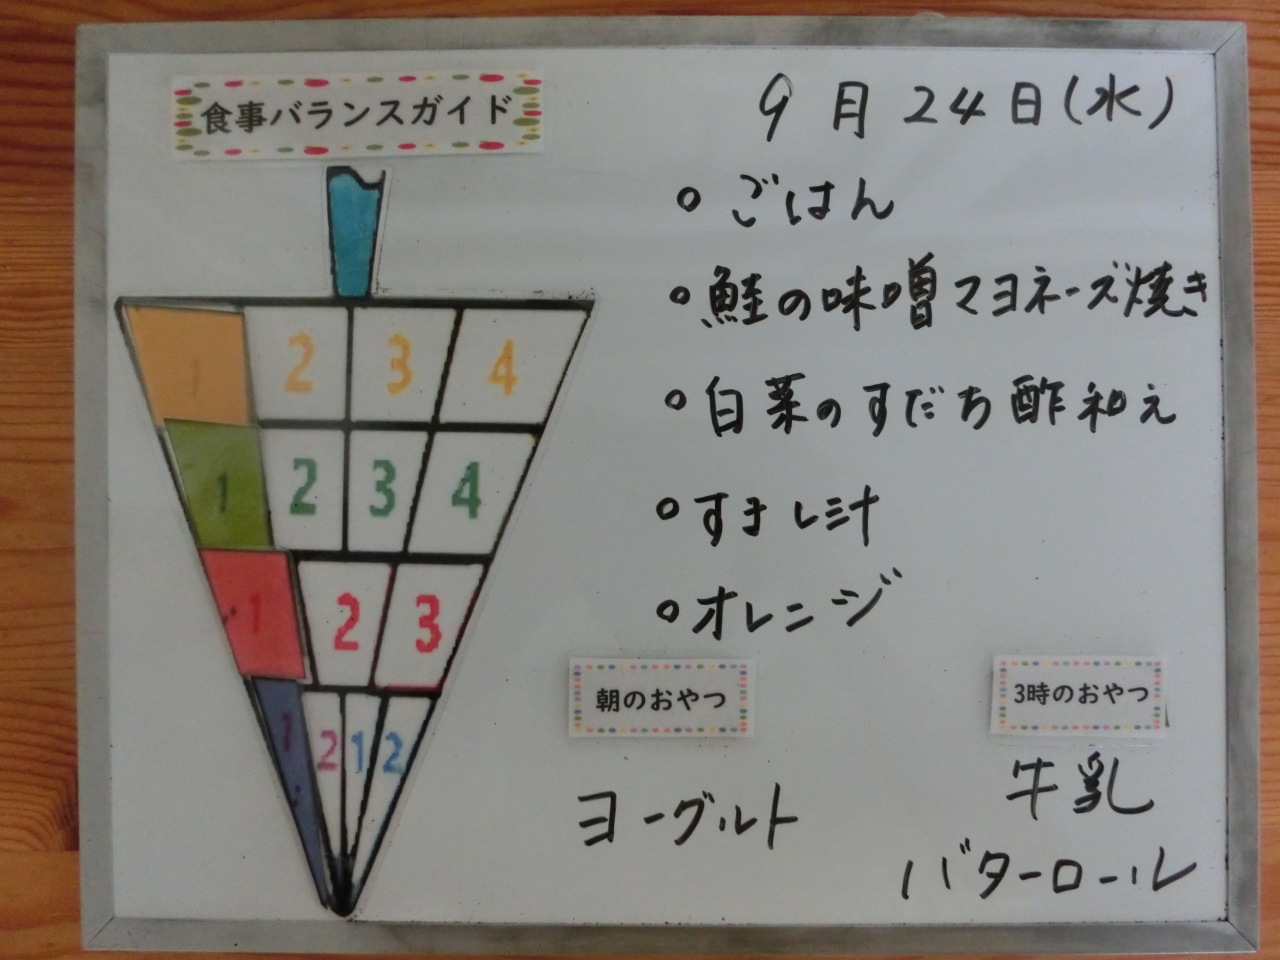 食事バランスガイド
1 2 3 4
1 2 3 4
1 2 3
1 2 1 2
9月24日(水)
・ごはん
・鮭の味噌マヨネーズ焼き
・白菜のすだち酢和え
・すまし汁
・オレンジ
朝のおやつ
ヨーグルト
3時のおやつ
牛乳
バターロール